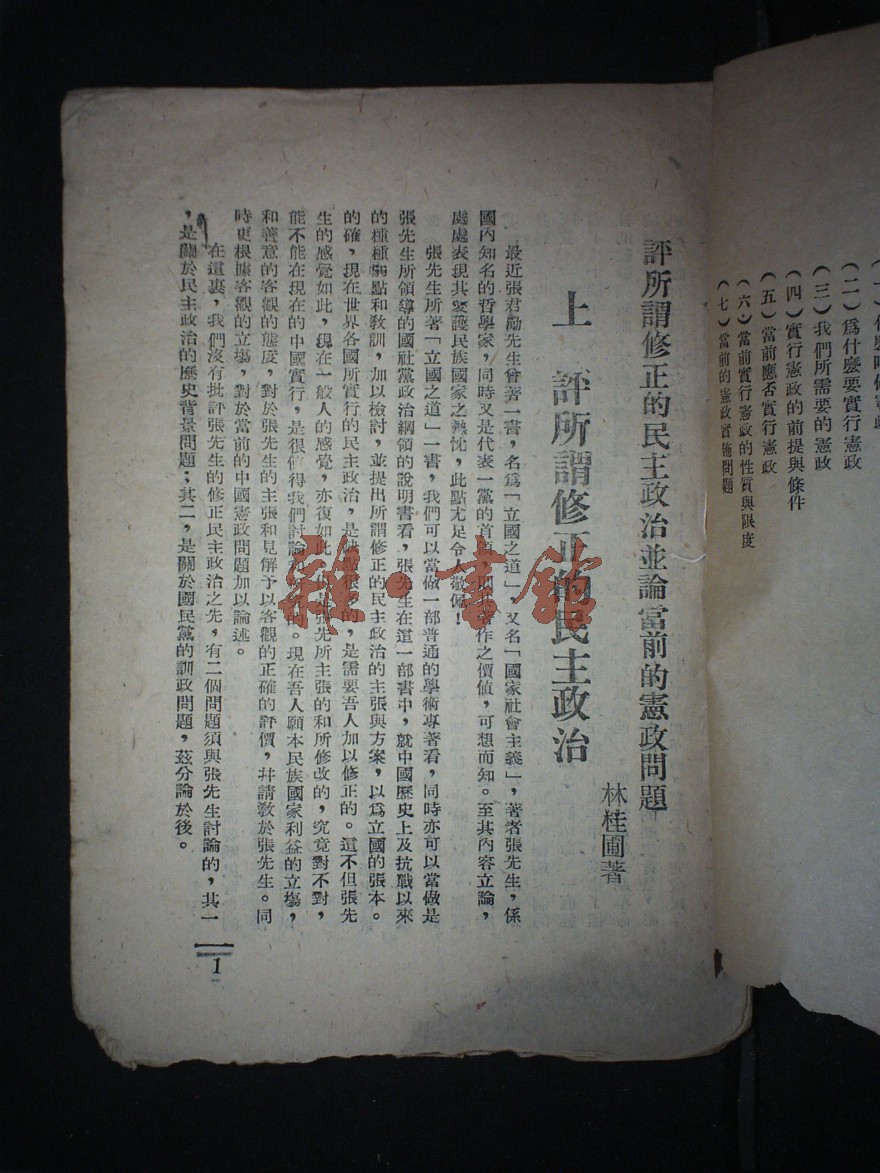 (二)爲什麼要實行憲政
(三)我們所需要的憲政
(四)實行憲政的前提與條件
(五)當前應否實行憲政
(六)當前實行憲政的性質與限度
(七)當前的憲政實施問題
評所謂修正的民主政治並論當前的憲政問題
林桂圃著
上 評所謂修正的民主政治
最近張君勱先生曾著一書,名爲「立國之道」,又名「國家社會主義」,著者張先生,係
國內知名的哲學家,同時又是代表一黨的首領,則其著作之價値,可想而知。至其內容立論,
處處表現其愛護民族國家之熱忱,此點尤足令人敬佩!
張先生所著「立國之道」一書,我們可以當做一部普通的學術專著看,同時亦可以當做是
張先生所領導的國社黨政治綱領的說明書看,張先生在這一部書中,就中國歷史上及抗戰以來
的種種弱點和教訓,加以檢討,並提出所謂修正的民主政治的主張與方案,以爲立國的張本。
的確,現在世界各國所實行的民主政治,是缺點很多的,是需要吾人加以修正的。這不但張先
生的感覺如此,現在一般人的感覺,亦復如此,但是張先所主張的和所修改的,究竟對不對,
能不能在現在的中國實行,是很值得我們討論研究的。現在吾人願本民族國家利益的立場,
和善意的客觀的態度,對於張先生的主張和見解予以客觀的正確的評價,幷請教於張先生。同
時更根據客觀的立場,對於當前的中國憲政問題加以論述。
在這裏,我們沒有批評張先生的修正民主政治之先,有二個問題須與張先生討論的,其一
,是關於民主政治的歷史背景問題;其二,是關於國民黨的訓政問題,茲分論於後。
1
雜·書館